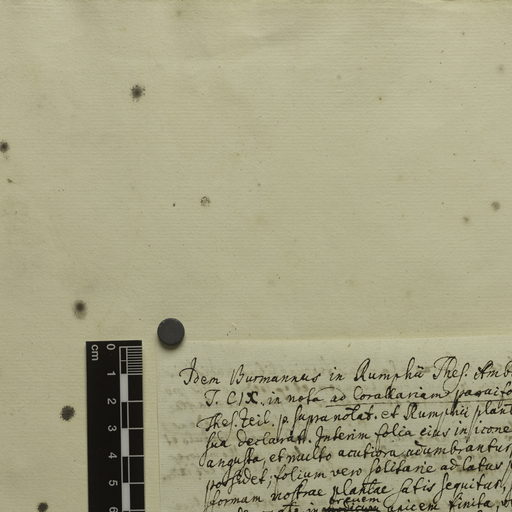 cm 0 1 2 3 4 5 6
Idem Burmannus in Rumphii Thes. Amb
T. CIX. in nota ad Corallariam parvifo
Thes. Zeil. p supra notat. et Rumphii plant
sua declarat. Interim folia eius in icone
angusta, et multo acutiora adumbrantur
possidet; folium vero solitarie ad latus p
formam nostrae plantae satis sequitur,
brevem
apicem finita,